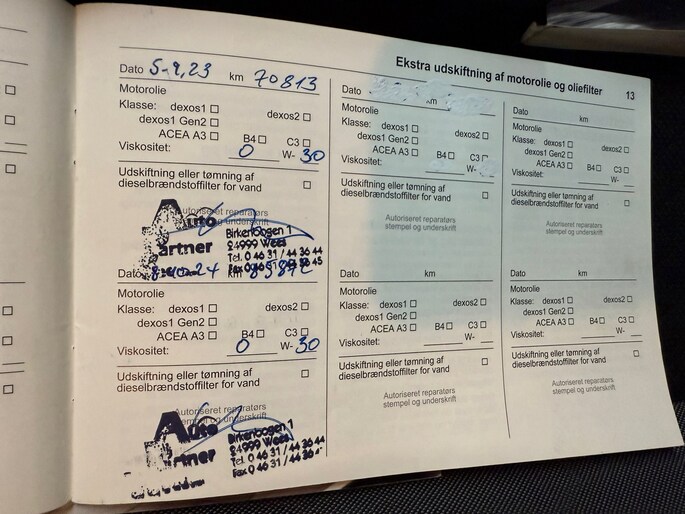 Ekstra udskiftning af motorolie og oliefilter 13
Dato 5-9,23 km 70813
Motorolie
Klasse: dexos1 dexos2
dexos1 Gen2
ACEA A3 B4 C3
Viskositet: 0 W- 30
Udskiftning eller tømning af
dieselbrændstoffilter for vand
Autoriseret reparatørs
stempel og underskrift
Auto
Partner
Birkenbogen 1
24999 Wees
Tel. 0 46 31 / 44 36 44
Fax 0 46 31 / 44 36 45
Dato 8-10-24 km
Motorolie
Klasse: dexos1 dexos2
dexos1 Gen2
ACEA A3 B4 C3
Viskositet: 0 W- 30
Udskiftning eller tømning af
dieselbrændstoffilter for vand
Autoriseret reparatørs
stempel og underskrift
Auto
Partner
Birkenbogen 1
24999 Wees
Tel. 0 46 31 / 44 36 44
Fax 0 46 31 / 44 36
Dato km
Motorolie
Klasse: dexos1 dexos2
dexos1 Gen2
ACEA A3 B4 C3
Viskositet: W-
Udskiftning eller tømning af
dieselbrændstoffilter for vand
Autoriseret reparatørs
stempel og underskrift
Dato km
Motorolie
Klasse: dexos1 dexos2
dexos1 Gen2
ACEA A3 B4 C3
Viskositet: W-
Udskiftning eller tømning af
dieselbrændstoffilter for vand
Autoriseret reparatørs
stempel og underskrift
Dato km
Motorolie
Klasse: dexos1 dexos2
dexos1 Gen2
ACEA A3 B4 C3
Viskositet: W-
Udskiftning eller tømning af
dieselbrændstoffilter for vand
Autoriseret reparatørs
stempel og underskrift
Dato km
Motorolie
Klasse: dexos1 dexos2
dexos1 Gen2
ACEA A3 B4 C3
Viskositet: W-
Udskiftning eller tømning af
dieselbrændstoffilter for vand
Autoriseret reparatørs
stempel og underskrift